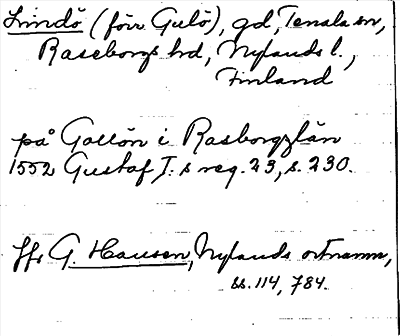 Lindö (förr Gulö), gd, Tenala sn,
Raseborgs hd, Nylands l.,
Finland
på Gollön i Rasborgzlän
1552 Gustaf I:s reg. 23, s. 230.
Jfr G. Hausen, Nylands ortnamn,
ss. 114, 784.